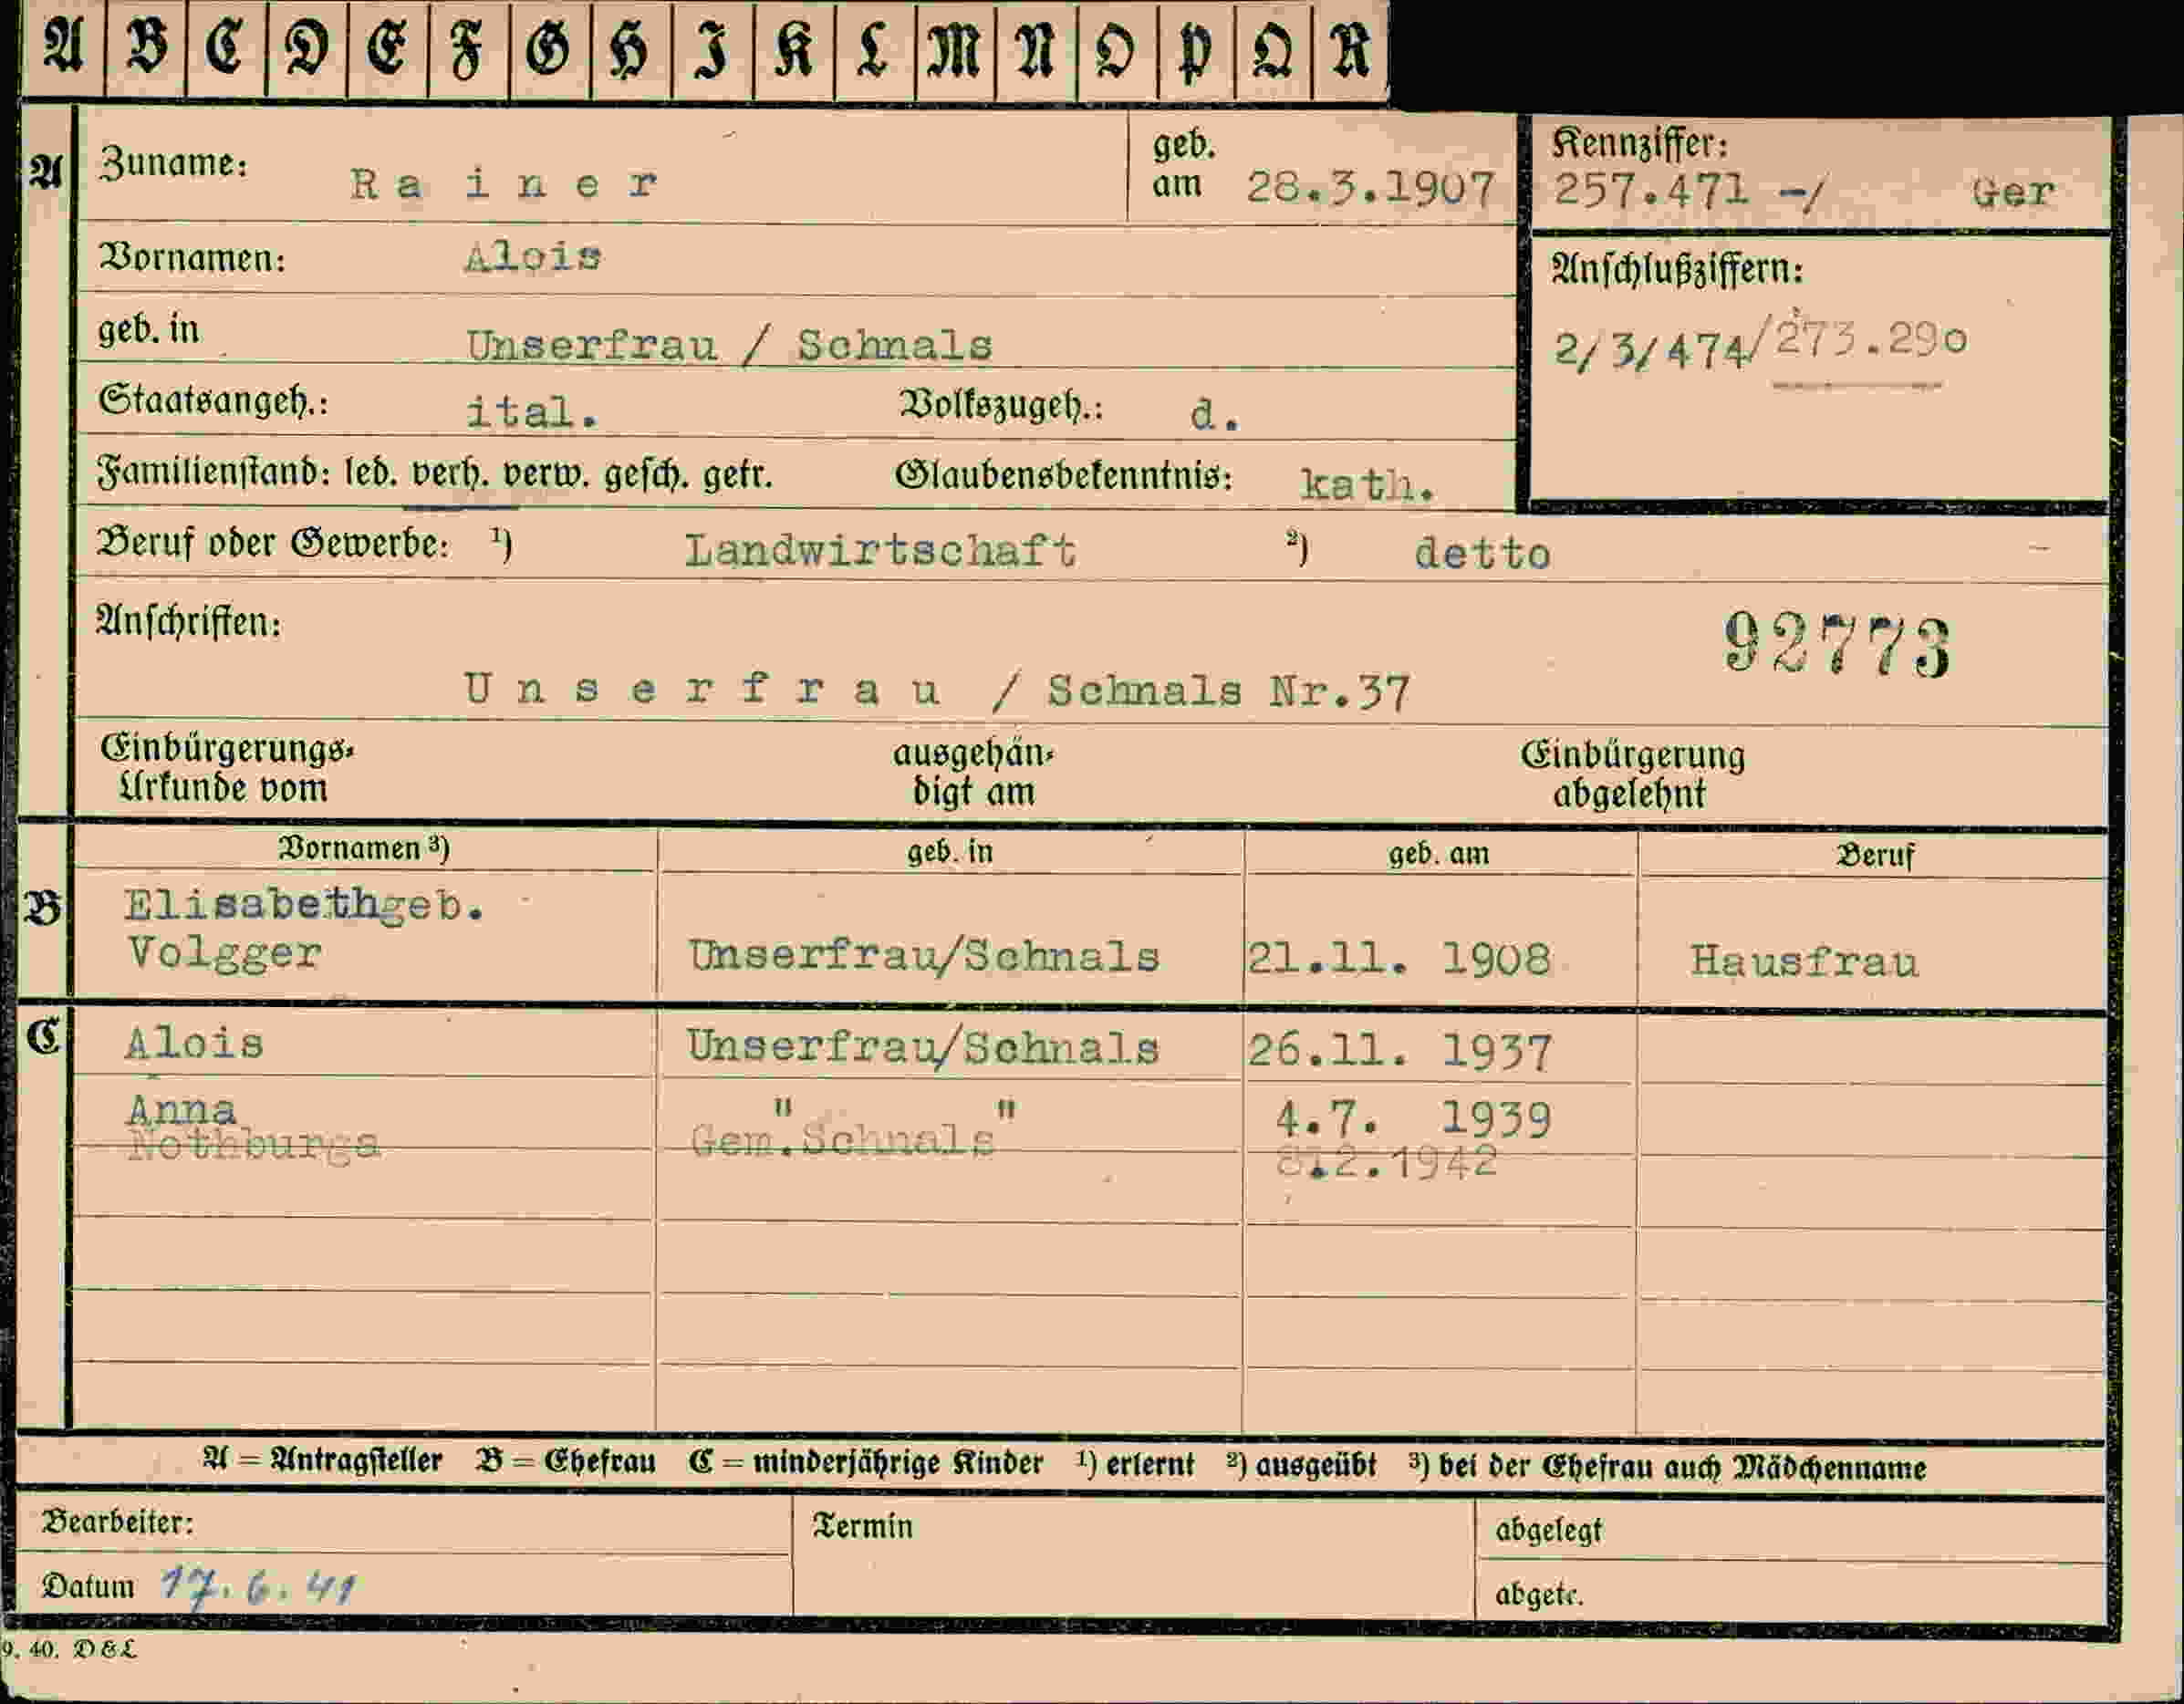 A B C D E F G H I K L M N O P Q R
A Zuname: Rainer geb. am 28.3.1907
Kennziffer:
257.471 -/ Ger
Vornamen: Alois
Anschlußziffern:
2/3/474/273.290
geb. in Unserfrau / Schnals
Staatsangeh.: ital. Volkszugeh.: d.
Familienstand: led. verh. verw. gesch. getr. Glaubensbekenntnis: kath.
Beruf oder Gewerbe: 1) Landwirtschaft 2) detto
Anschriften:
92773
Unserfrau / Schnals Nr.37
Einbürgerungs- ausgehän- Einbürgerung
Urkunde vom digt am abgelehnt
Vornamen 3) geb. in geb. am Beruf
B Elisabeth geb.
Volgger Unserfrau/Schnals 21.11. 1908 Hausfrau
C Alois Unserfrau/Schnals 26.11. 1937
Anna " " 4.7. 1939
Nothburga Gem.Schnals 8.2.1942
A = Antragsteller B = Ehefrau C = minderjährige Kinder 1) erlernt 2) ausgeübt 3) bei der Ehefrau auch Mädchenname
Bearbeiter: Termin abgelegt
Datum 17.6.41 abgetr.
9. 40. D&L